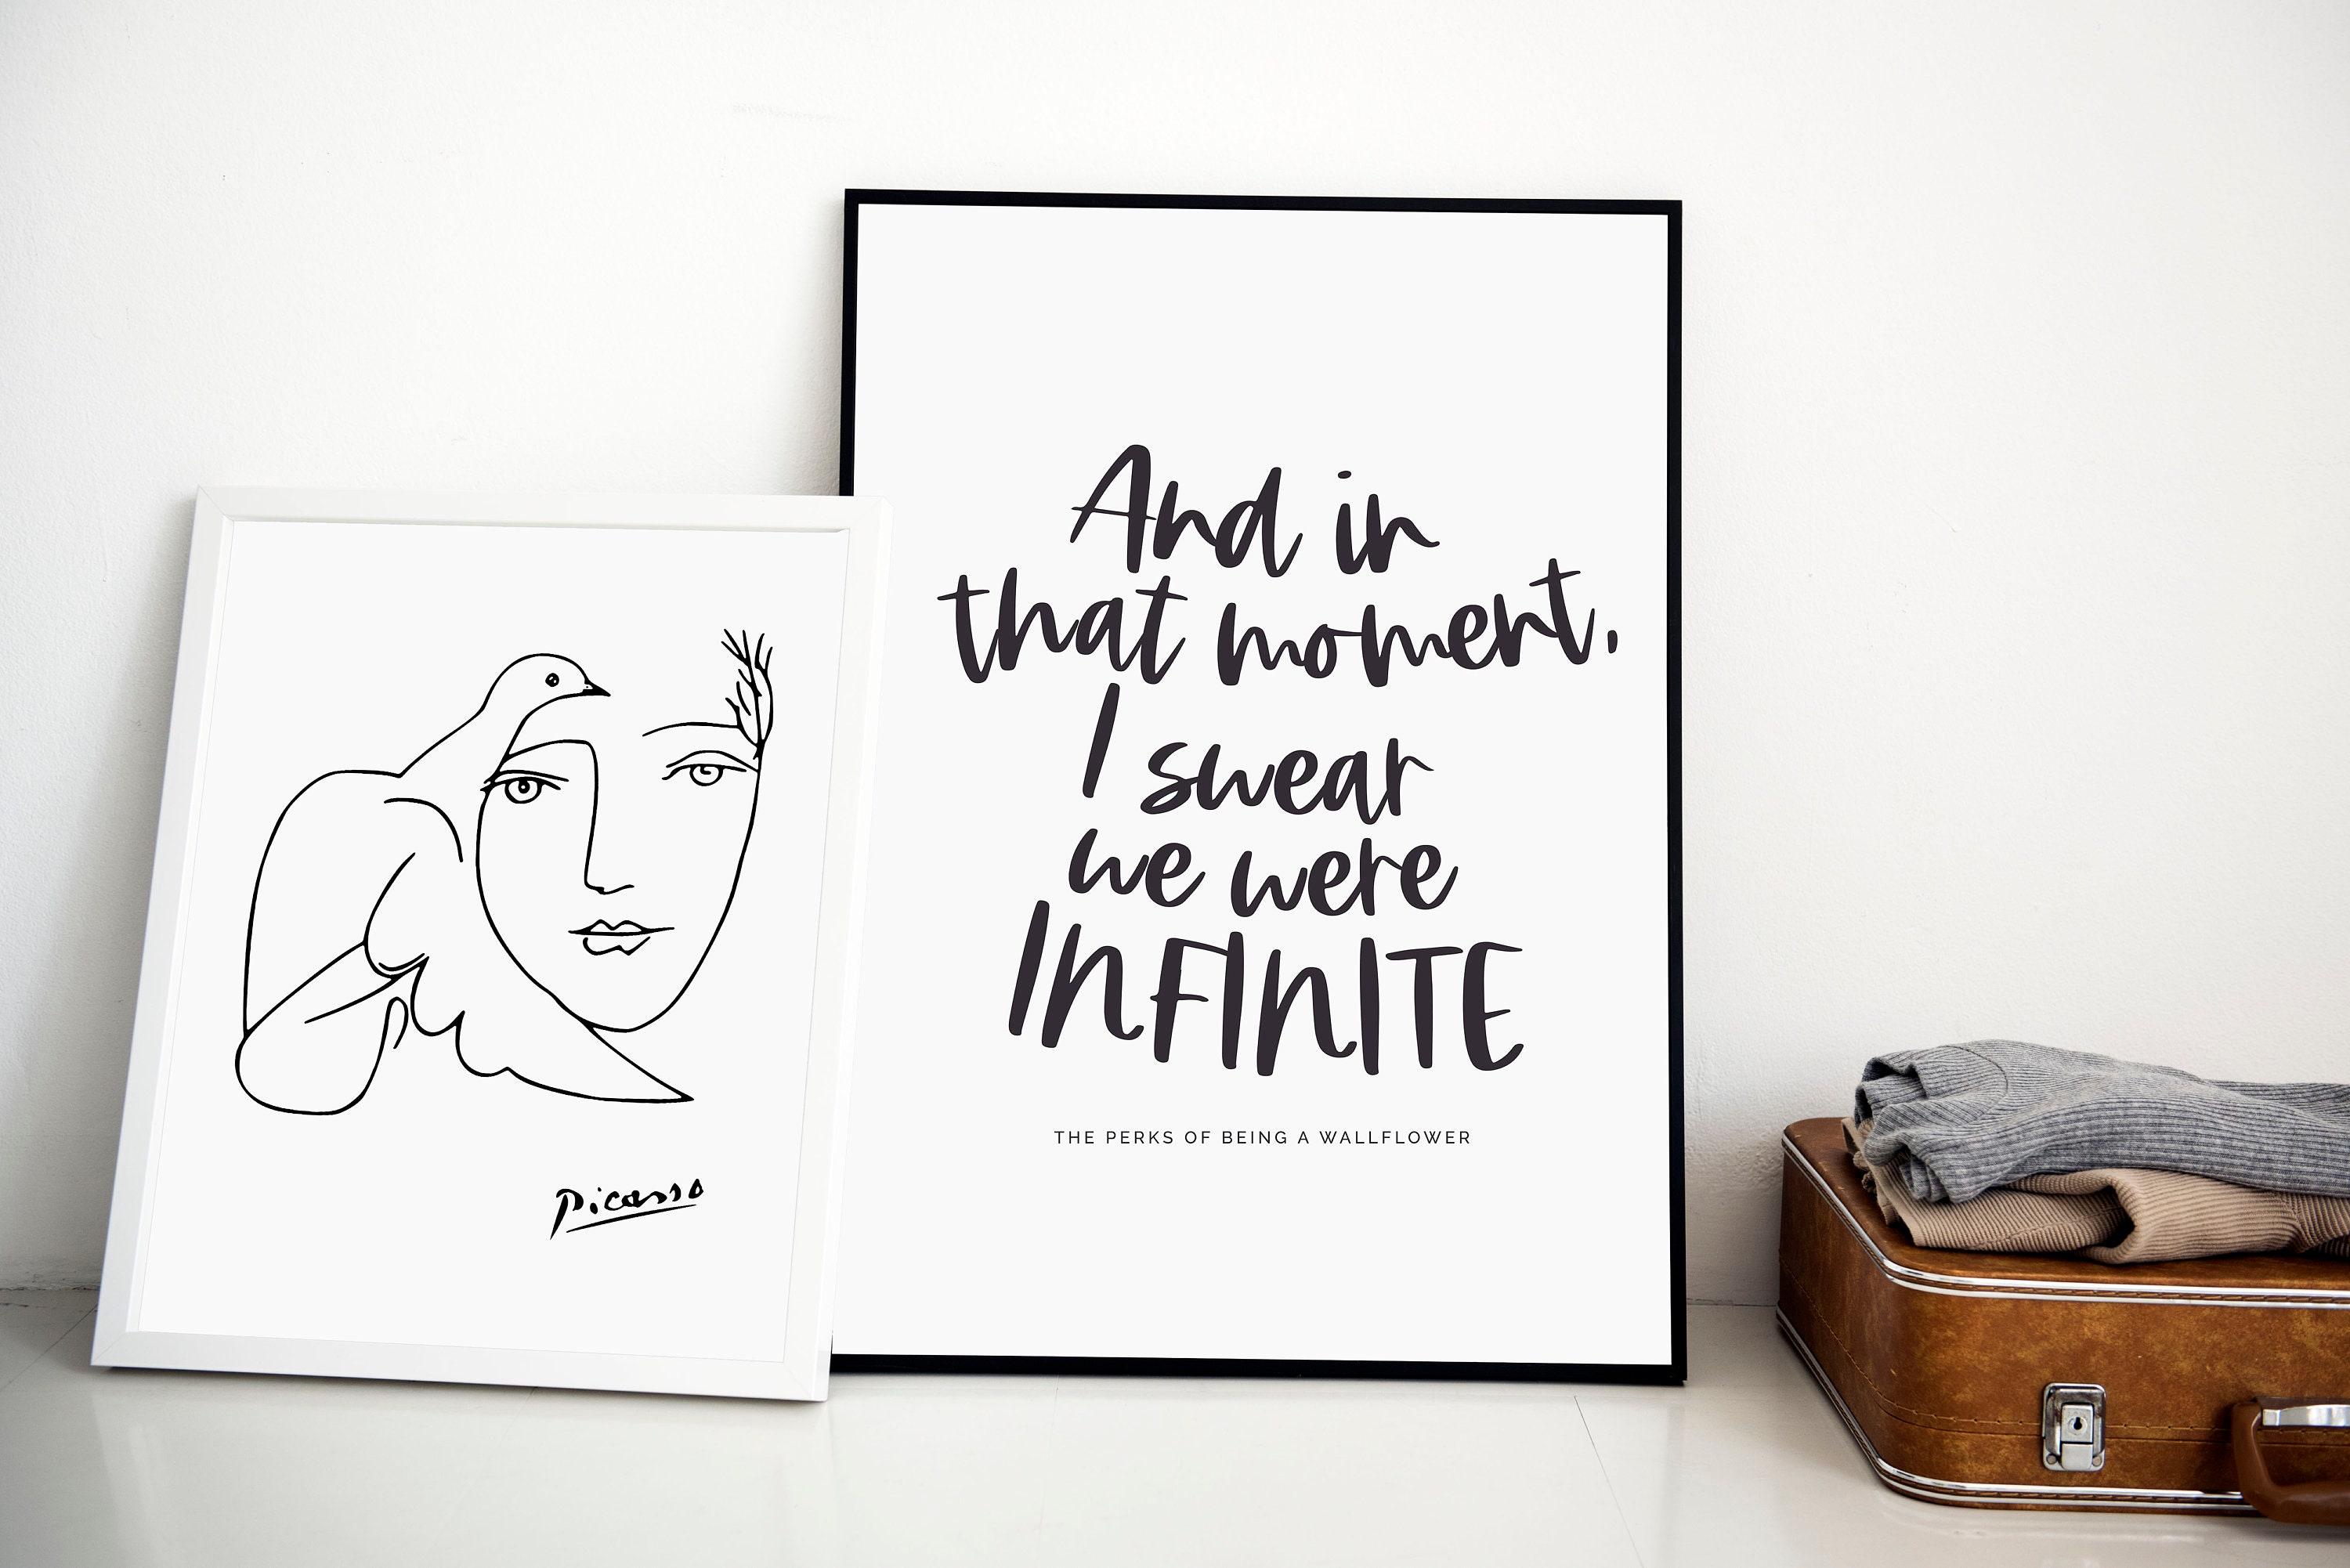 And in
that moment,
I swear
we were
INFINITE
THE PERKS OF BEING A WALLFLOWER
Picasso